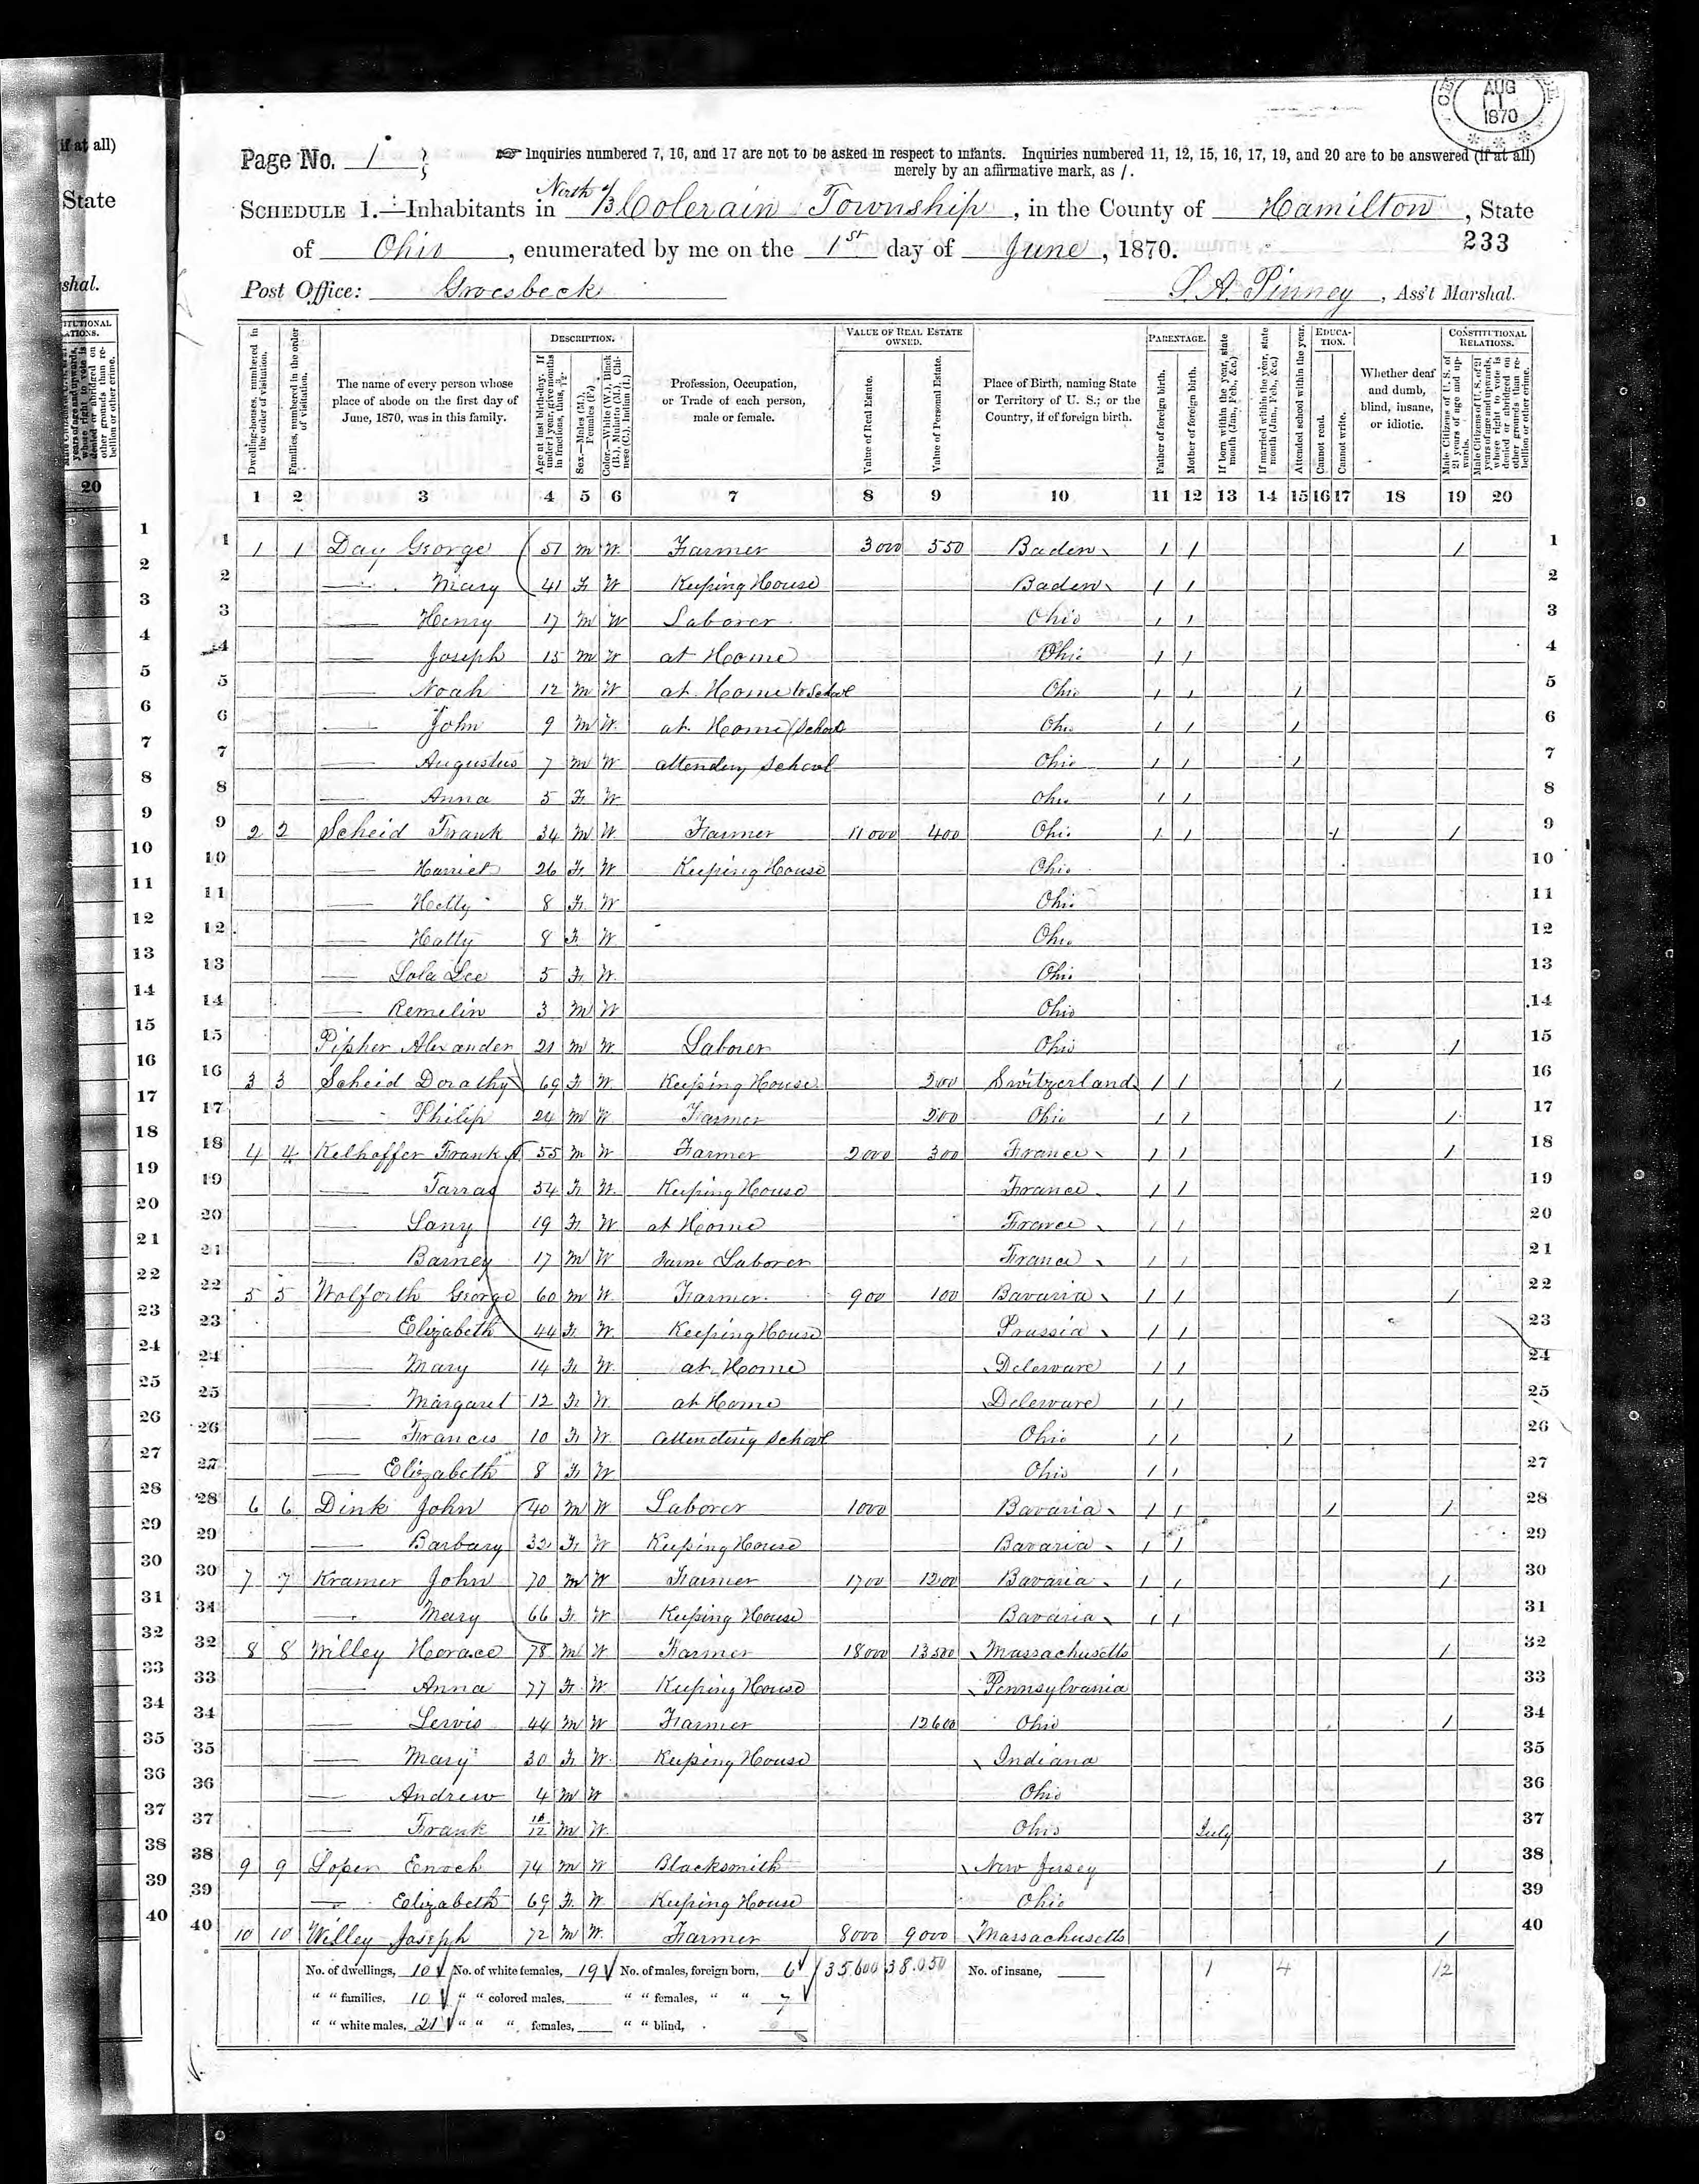 AUG
1
1870
(if at all)
State
shal.
20
Page No. 1
Inquiries numbered 7, 16, and 17 are not to be asked in respect to infants. Inquiries numbered 11, 12, 15, 16, 17, 19, and 20 are to be answered (if at all)
merely by an affirmative mark, as /.
North of
SCHEDULE 1.—Inhabitants in Colerain Township, in the County of Hamilton, State
of Ohio, enumerated by me on the 1st day of June, 1870.
233
Post Office: Groesbeck
S. A. Pinney, Ass't Marshal.
Dwelling-houses, numbered in the order of visitation.
Families, numbered in the order of visitation.
The name of every person whose place of abode on the first day of June, 1870, was in this family.
DESCRIPTION.
Age at last birth-day. If under 1 year, give months in fractions, thus, 3/12.
Sex.—Males (M.), Females (F.)
Color.—White (W.), Black (B.), Mulatto (M.), Chinese (C.), Indian (I.)
Profession, Occupation, or Trade of each person, male or female.
VALUE OF REAL ESTATE OWNED.
Value of Real Estate.
Value of Personal Estate.
Place of Birth, naming State or Territory of U. S.; or the Country, if of foreign birth.
PARENTAGE.
Father of foreign birth.
Mother of foreign birth.
If born within the year, state month (Jan., Feb., &c.)
If married within the year, state month (Jan., Feb., &c.)
Attended school within the year.
EDUCATION.
Cannot read.
Cannot write.
Whether deaf and dumb, blind, insane, or idiotic.
CONSTITUTIONAL RELATIONS.
Male Citizens of U. S. of 21 years of age and upwards.
Male Citizens of U. S. of 21 years of age and upwards, whose right to vote is denied or abridged on other grounds than rebellion or other crime.
1 2 3 4 5 6 7 8 9 10 11 12 13 14 15 16 17 18 19 20
1 1 1 Day George 51 M W Farmer 3000 550 Baden / / / 1
2 — Mary 41 F W Keeping House Baden / / 2
3 — Henry 17 M W Laborer Ohio / / 3
4 — Joseph 15 M W at Home Ohio / / 4
5 — Noah 12 M W at Home to School Ohio / / / 5
6 — John 9 M W at Home (School Ohio / / / 6
7 — Augustus 7 M W attending School Ohio / / / 7
8 — Anna 5 F W Ohio / / 8
9 2 2 Scheid Frank 34 M W Farmer 11000 400 Ohio / / / / 9
10 — Harriet 26 F W Keeping House Ohio 10
11 — Hetty 8 F W Ohio 11
12 — Hatty 8 F W Ohio 12
13 — Lola Lee 5 F W Ohio 13
14 — Remelin 3 M W Ohio 14
15 Pipher Alexander 21 M W Laborer Ohio / 15
16 3 3 Scheid Dorathy 69 F W Keeping House 200 Switzerland / / / 16
17 — Philip 24 M W Farmer 200 Ohio / / / 17
18 4 4 Kelhoffer Frank 55 M W Farmer 2000 300 France / / / 18
19 — Tarras 54 F W Keeping House France / / 19
20 — Lany 19 F W at Home France / / 20
21 — Barney 17 M W Farm Laborer France / / 21
22 5 5 Wolforth George 60 M W Farmer 900 100 Bavaria / / / 22
23 — Elizabeth 44 F W Keeping House Prussia / / 23
24 — Mary 14 F W at Home Deleware / / 24
25 — Margaret 12 F W at Home Deleware / / 25
26 — Francis 10 F W attending School Ohio / / / 26
27 — Elizabeth 8 F W Ohio / / 27
28 6 6 Dink John 40 M W Laborer 1000 Bavaria / / / / 28
29 — Barbary 32 F W Keeping House Bavaria / / 29
30 7 7 Kramer John 70 M W Farmer 1700 1200 Bavaria / / / 30
31 — Mary 66 F W Keeping House Bavaria / / 31
32 8 8 Willey Horace 78 M W Farmer 18000 13500 Massachusetts / 32
33 — Anna 77 F W Keeping House Pennsylvania 33
34 — Lewis 44 M W Farmer 12600 Ohio / 34
35 — Mary 30 F W Keeping House Indiana 35
36 — Andrew 4 M W Ohio 36
37 — Frank 10/12 M W Ohio July 37
38 9 9 Loper Enoch 74 M W Blacksmith New Jersey / 38
39 — Elizabeth 69 F W Keeping House Ohio 39
40 10 10 Willey Joseph 72 M W Farmer 8000 9000 Massachusetts / 40
No. of dwellings, 10 No. of white females, 19 No. of males, foreign born, 6 35.600 38.050 No. of insane, 1 4 12
" " families, 10 " " colored males, " " females, " " 7
" " white males, 21 " " " females, " " blind,